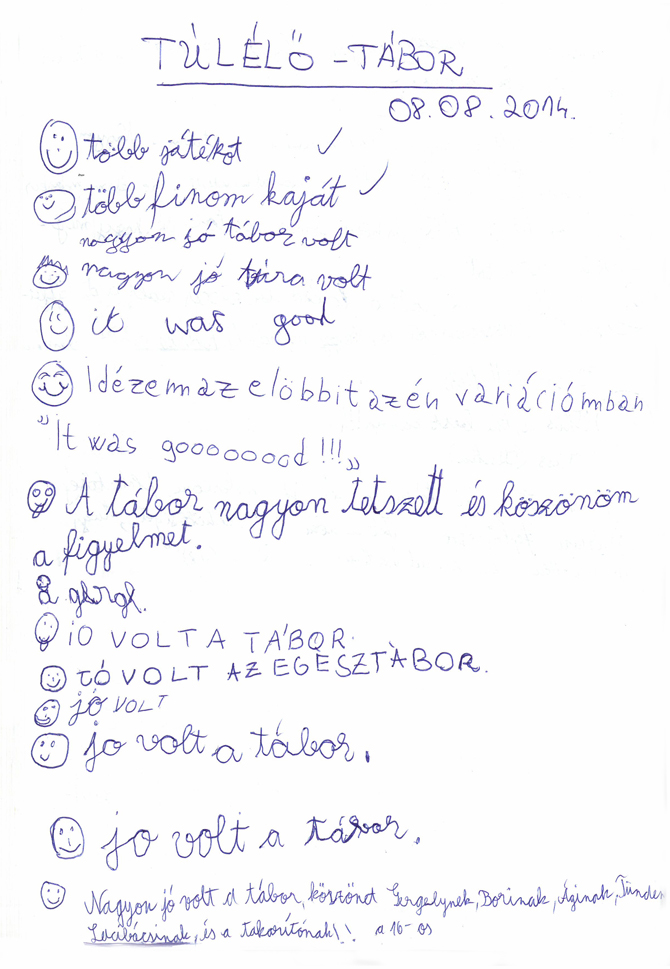 TÚLÉLŐ - TÁBOR
08.08.2014.
több játékot
több finom kaját
nagyon jó tábor volt
nagyon jó túra volt
it was good
Idézem az elöbbit az én variációmban
"It was gooooooood !!!"
A tábor nagyon tetszett és köszönöm
a figyelmet.
JO VOLT A TÁBOR.
JÓ VOLT AZ EGÉSZ TÁBOR.
jó VOLT
jo volt a tábor.
jo volt a tábor.
Nagyon jó volt a tábor, köszönöt Gergelynek, Borinak, Áginak, Tünden
Lacibácsinak, és a takarítónak!! a 16-os